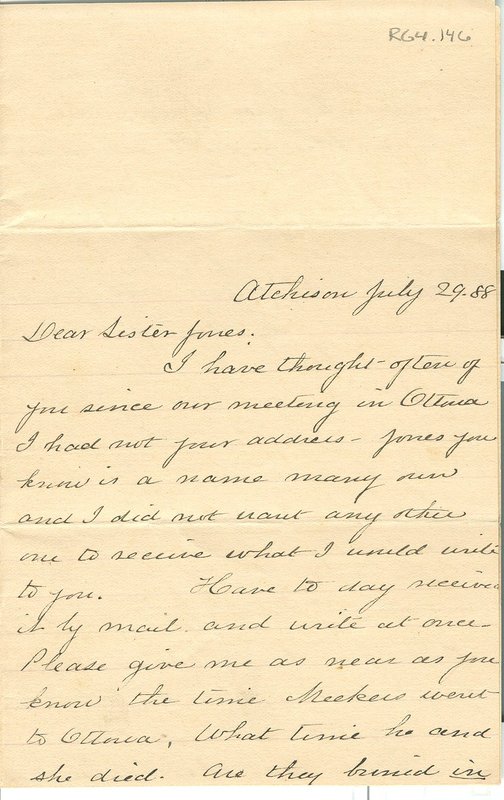 RG4.146
Atchison July 29-88
Dear Sister Jones.
I have thought often of
you since our meeting in Ottowa
I had not your address - Jones you
know is a name many own
and I did not want any other
one to receive what I would write
to you. Have to day received
it by mail. and write at once-
Please give me as near as you
know the time Meekers went
to Ottowa, What time he and
she died. Are they buried in